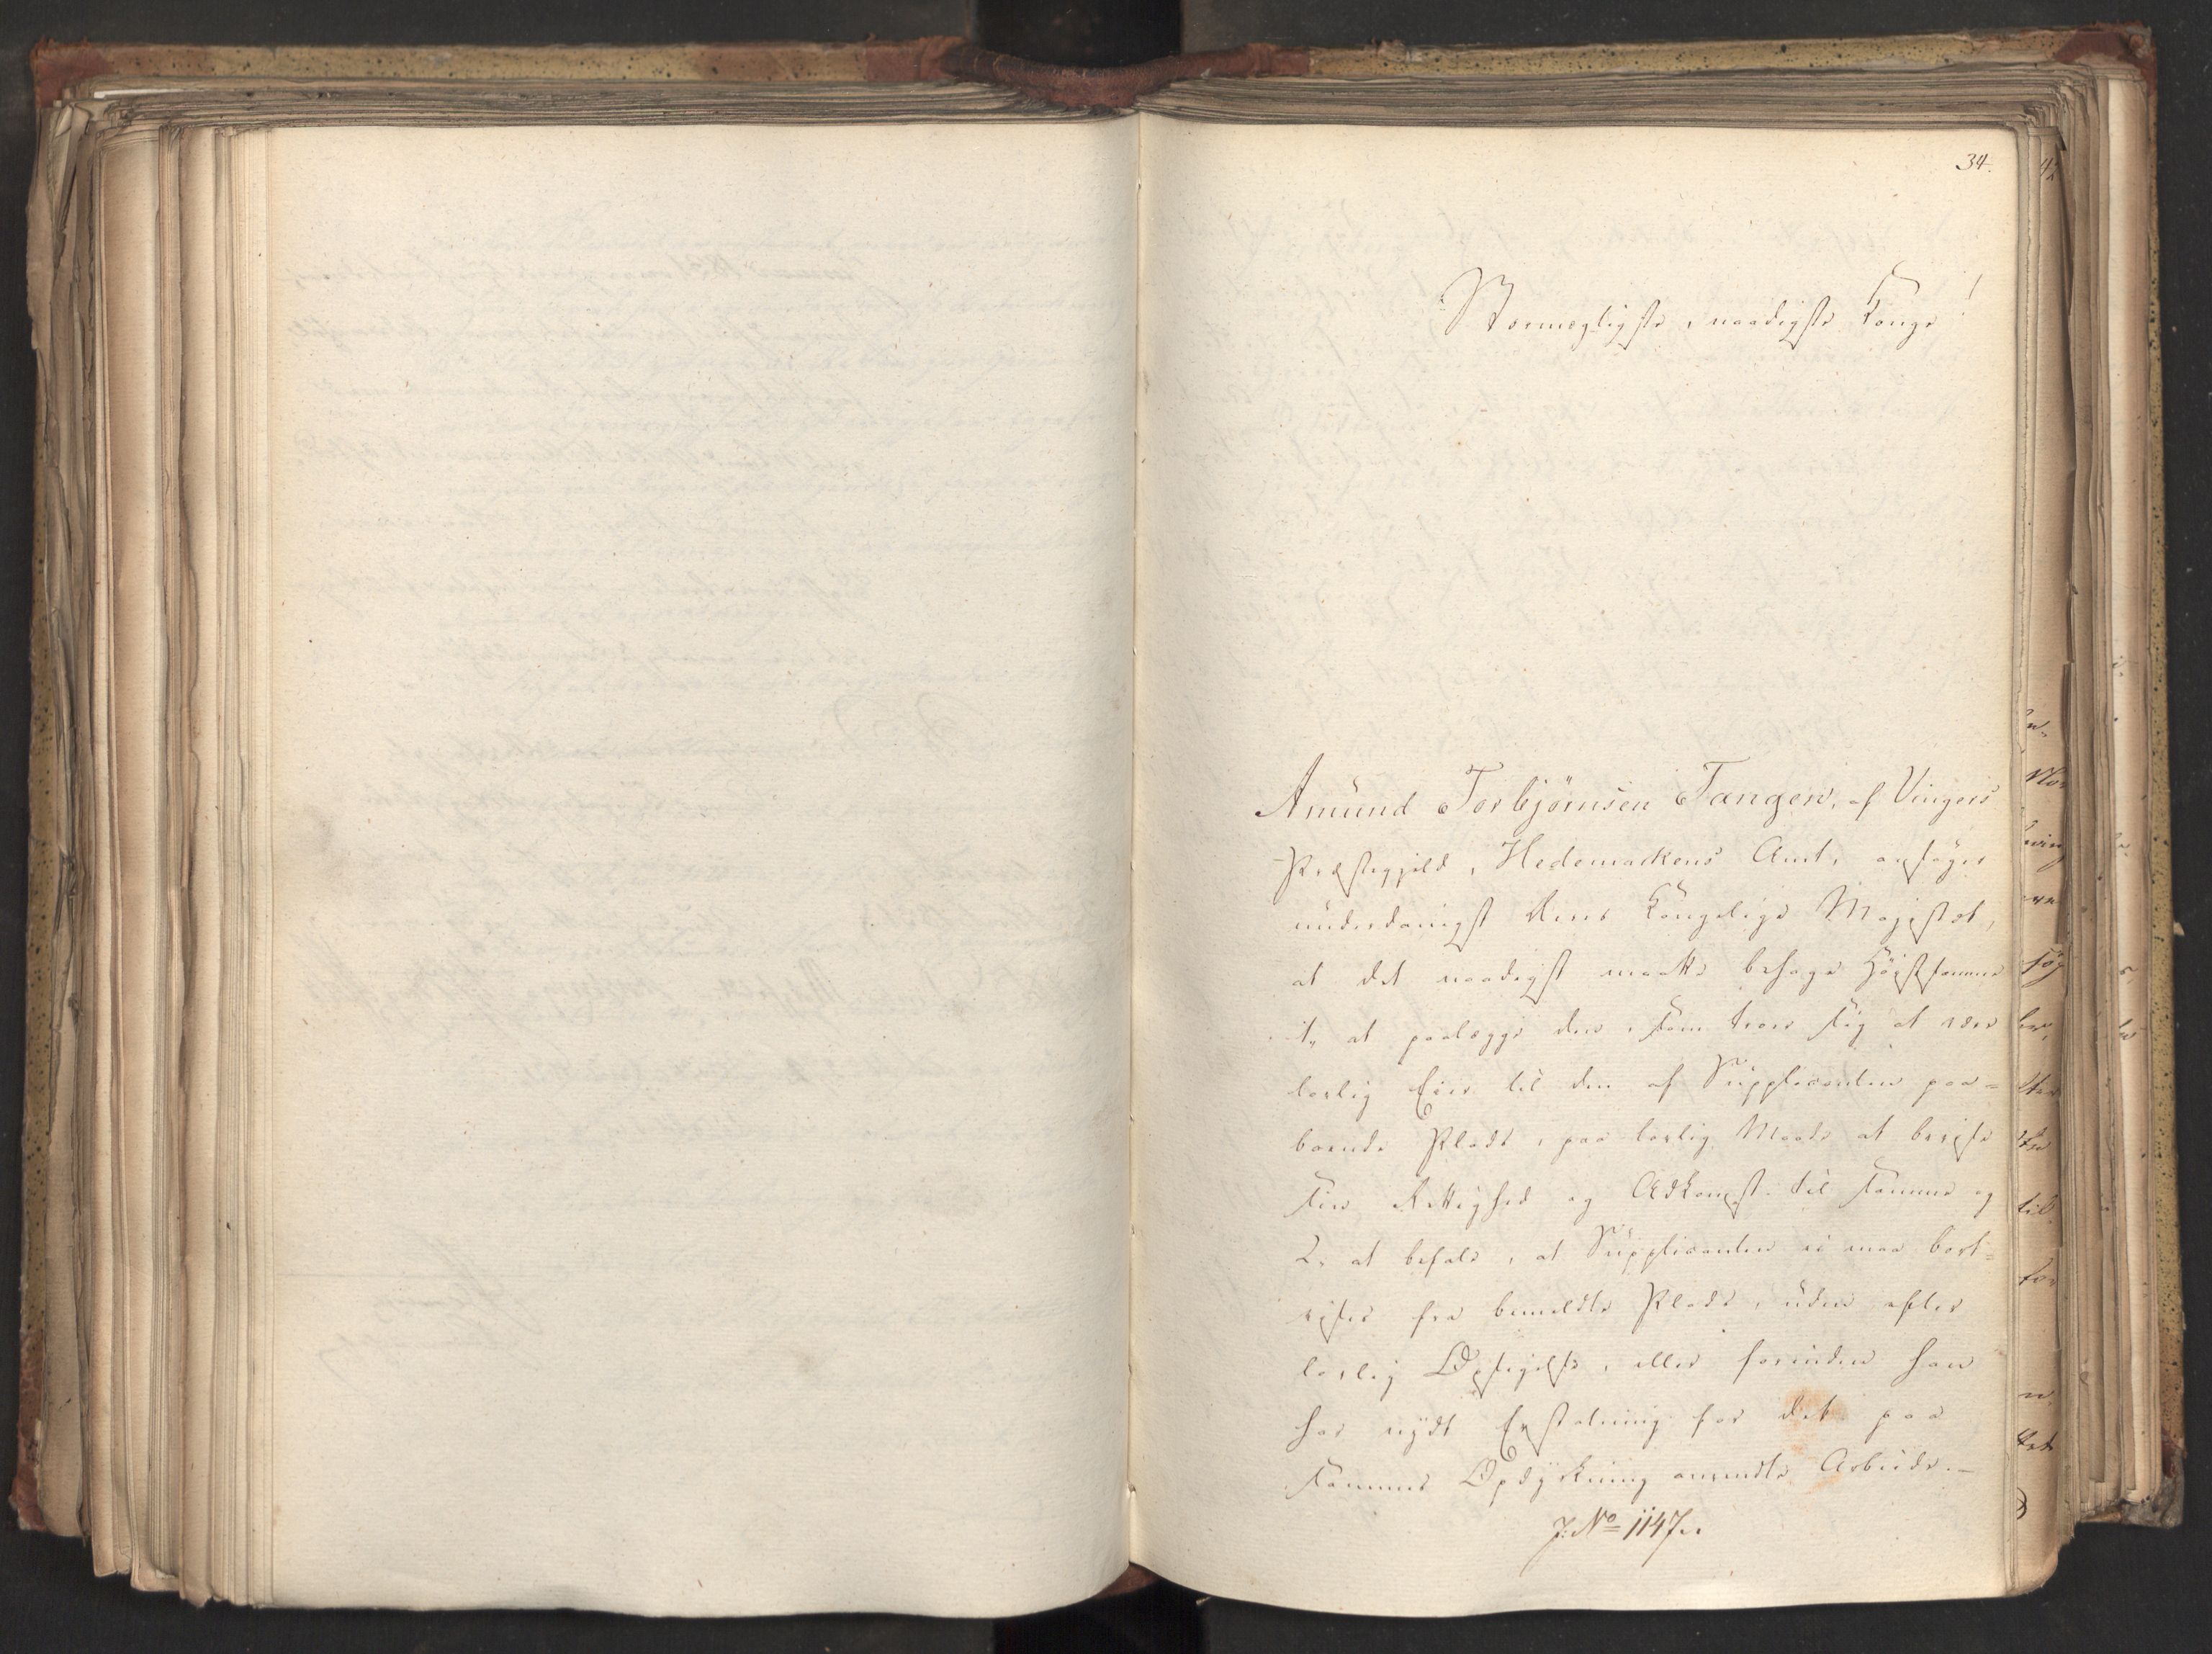 34.
Stormægtigste, naadigste Konge!
Amund Torbjörnsen Tangen, af Vingers
Præstegjeld, Hedemarkens Amt, ansøger
underdanigst Deres Kongelige Majestæt,
at det naadigst maatte behage Høistsamme
1, at paalægge den, som troer sig at være
lovlig Eier til den af Supplicanten paa=
boende Plads, paa lovlig Maade at bevise
sin Rettighed og Adkomst til samme og
2, at befale, at Supplicanten ei maa bort=
vises fra bemeldte Plads, uden efter
lovlig Opsigelse, eller forinden han
har nydt Erstatning for det paa
sammes Opdyrkning anvendte Arbeide.—
J: No 1147.